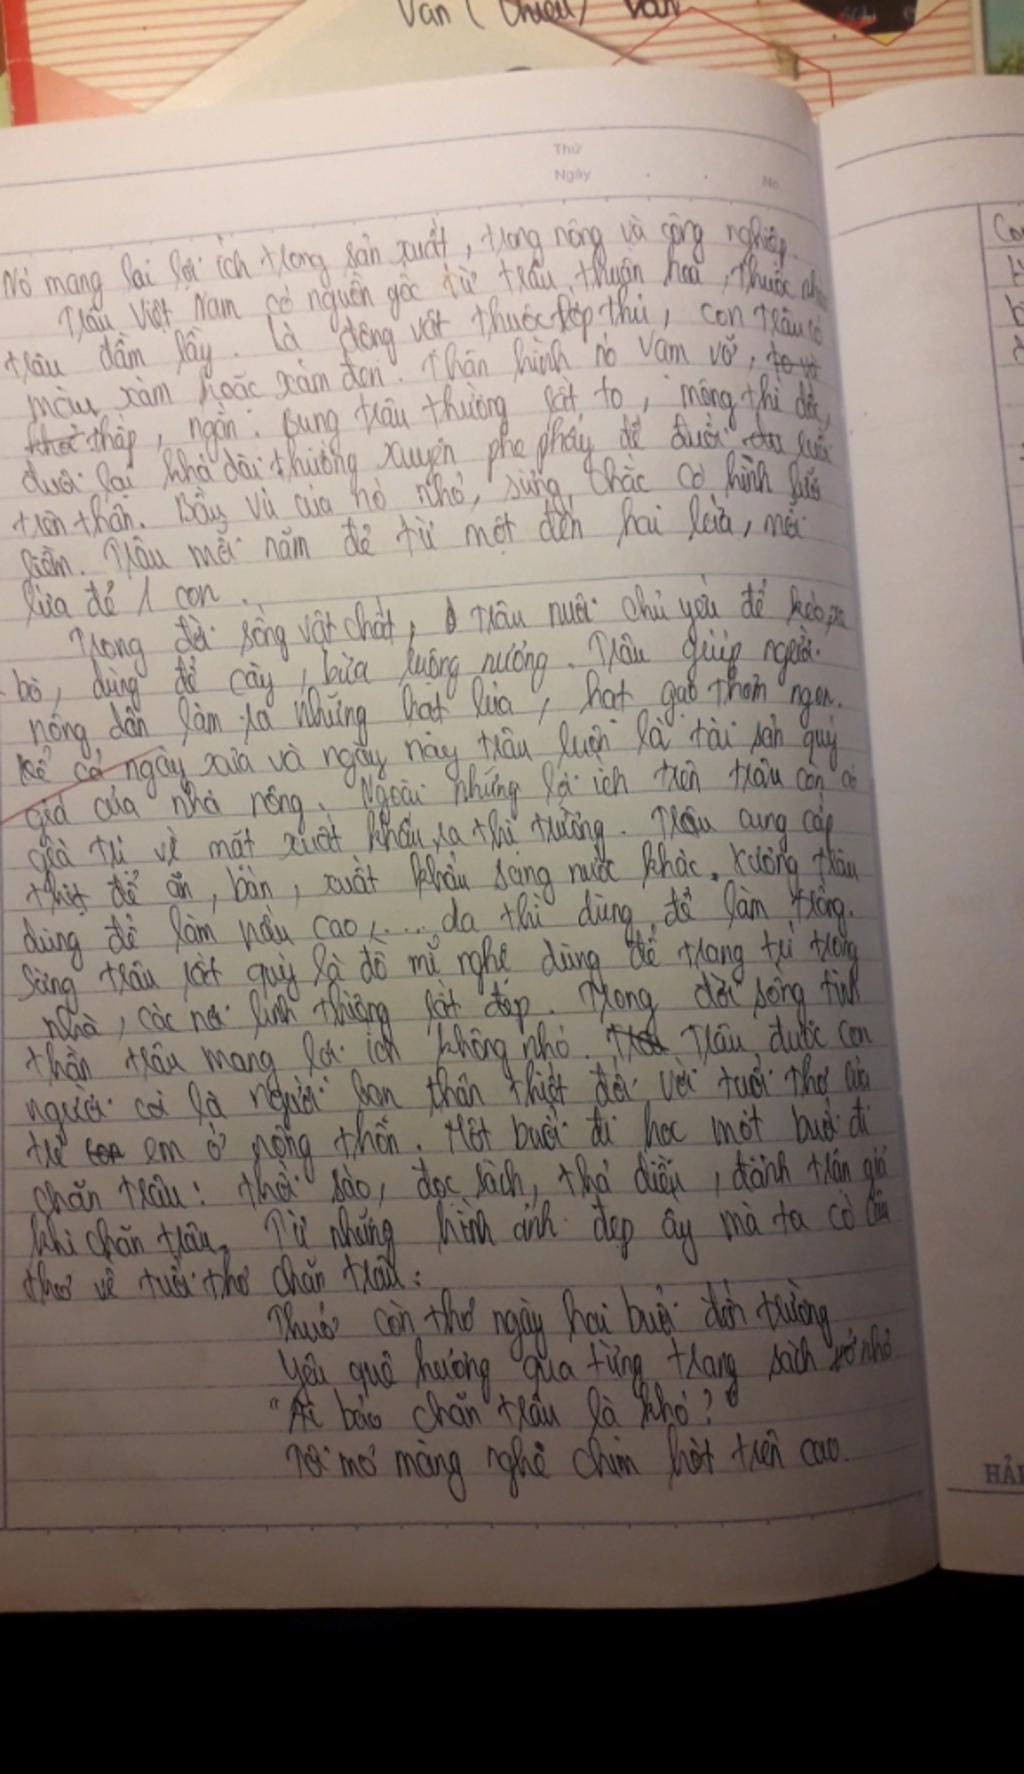 Văn ( Chiều) Văn
Thứ
Ngày
No.
Nó mang lại lợi ích trong sản xuất, trong nông và công nghiệp.
Trâu Việt Nam có nguồn gốc từ trâu thuần hoá, thuộc
trâu đầm lầy. Là động vật thuộc lớp thú, con trâu có
màu xám hoặc xám đen. Thân hình nó vạm vỡ,
thấp, ngắn. Bụng trâu thường rất to, mông thì dốc,
đuôi lại khá dài thường xuyên phe phẩy để đuổi ruồi
trên thân. Bầu vú của nó nhỏ, sừng chắc có hình lưỡi
liềm. Trâu mỗi năm đẻ từ một đến hai lứa, mỗi
lứa đẻ 1 con.
Trong đời sống vật chất, trâu nuôi chủ yếu để kéo
bò, dùng để cày, bừa ruộng nương. Trâu giúp người
nông dân làm ra những hạt lúa, hạt gạo thơm ngon.
Kể cả ngày xưa và ngày nay trâu luôn là tài sản quý
giá của nhà nông. Ngoài những lợi ích trên trâu còn có
giá trị về mặt xuất khẩu ra thị trường. Trâu cung cấp
thịt để ăn, bán, xuất khẩu sang nước khác. Xương trâu
dùng để làm nấu cao,... da thì dùng để làm trống.
Sừng trâu rất quý là đồ mĩ nghệ dùng để trang trí trong
nhà, các nơi linh thiêng rất đẹp. Trong đời sống tinh
thần trâu mang lợi ích không nhỏ. Trâu được con
người coi là người bạn thân thiết đối với tuổi thơ của
trẻ em ở nông thôn. Một buổi đi học một buổi đi
chăn trâu: thổi sáo, đọc sách, thả diều, đánh trận giả
khi chăn trâu. Từ những hình ảnh đẹp ấy mà ta có câu
thơ về tuổi thơ chăn trâu:
Thuở còn thơ ngày hai buổi đến trường
Yêu quê hương qua từng trang sách nhỏ
"Ai bảo chăn trâu là khổ?"
Tôi mơ màng nghe chim hót trên cao.
HẢI